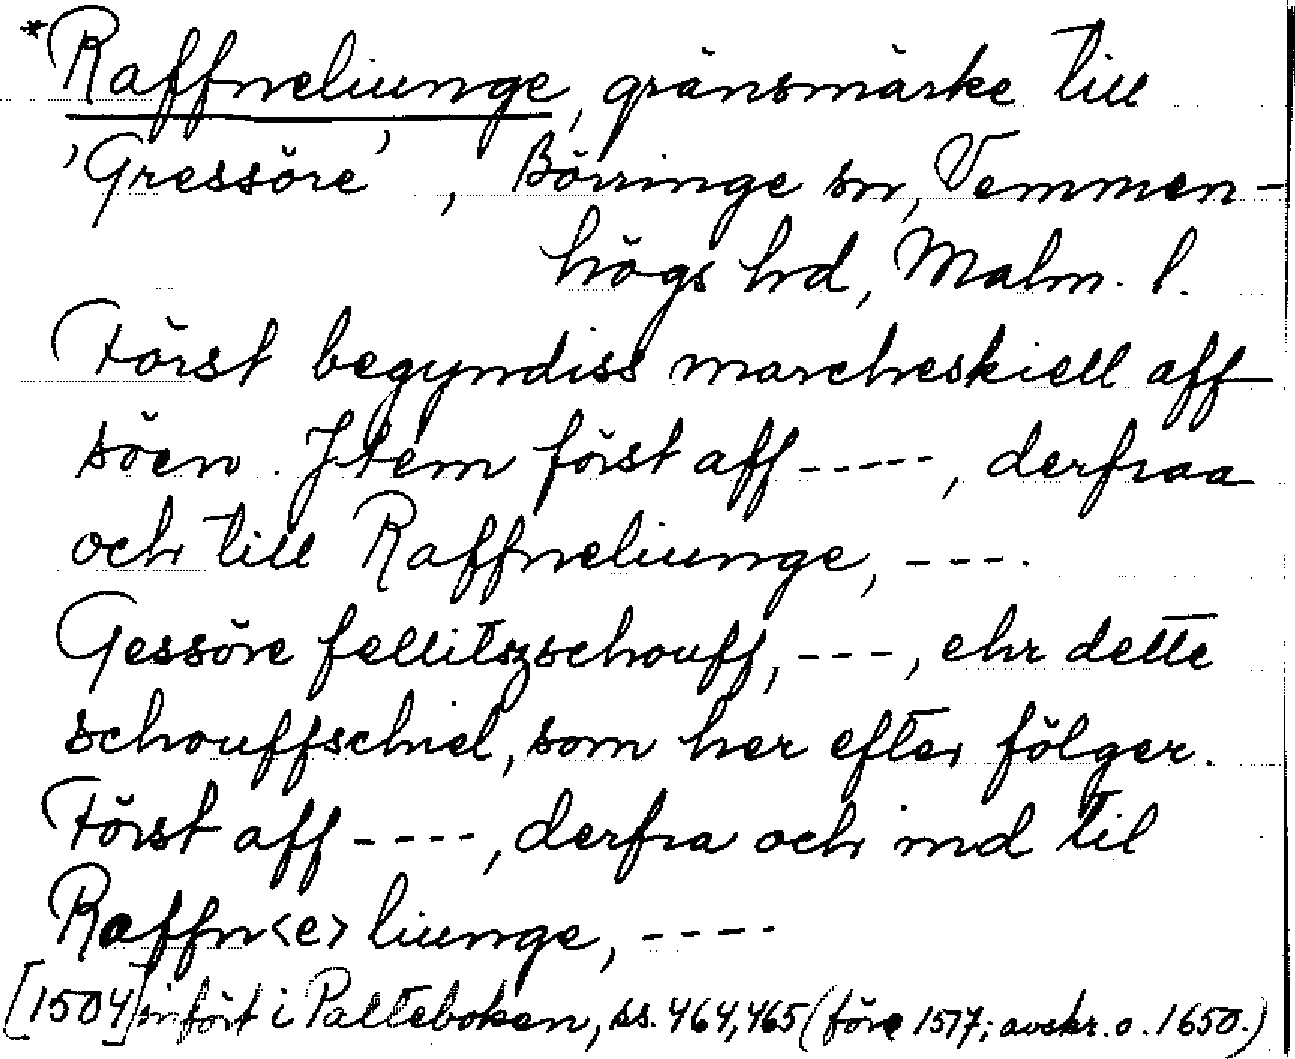 *Raffneliunge, gränsmärke till
'Gressöre', Börringe sn, Vemmen-
högs hd, Malm. l.
Först begyndiss marcheskiell aff
söen. Jtem först aff -----, derfraa
och till Raffneliunge, ---.
Gessöre fellitszschouff, ---, ehr dette
schouffschiel, som her efter fölger.
Först aff ----, derfra och ind til
Raffn<e>liunge, ----
[1504] infört i Palteboken, ss. 464, 465 (före 1517; avskr. o. 1650.)